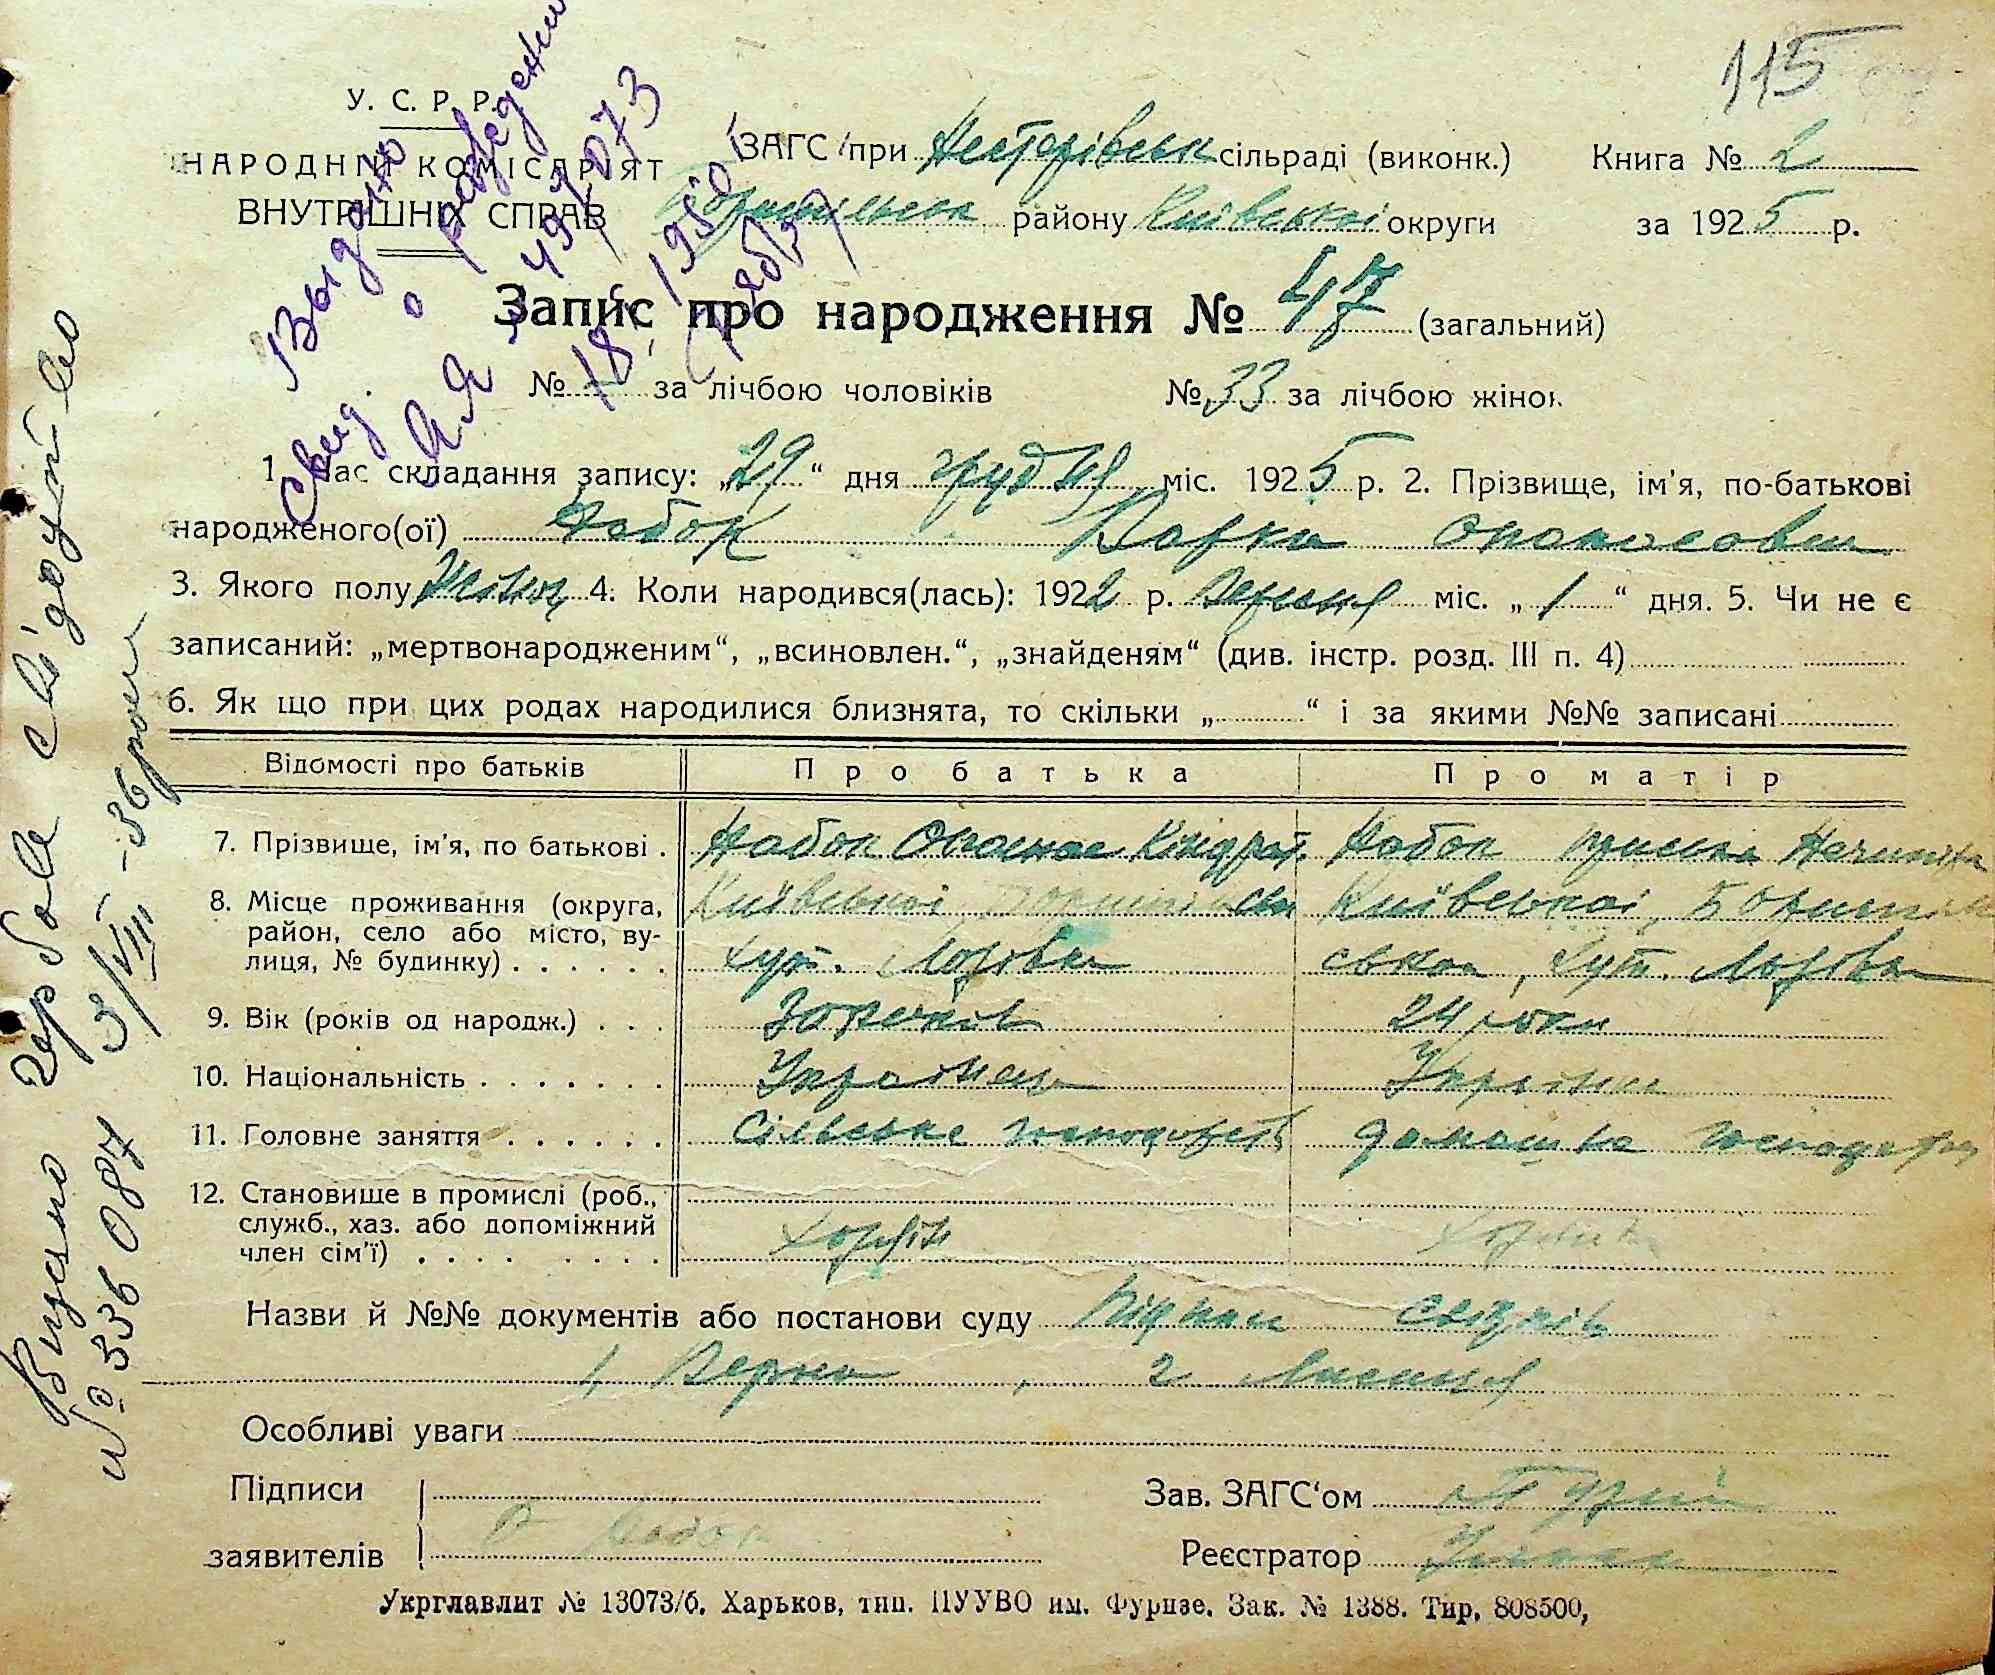 115
У. С. Р. Р.
НАРОДНІЙ КОМІСАРІЯТ
ВНУТРІШНІХ СПРАВ
ЗАГС при Нестерівськ сільраді (виконк.) Книга № 2
району Київської округи за 1925 р.
Выдано
Свид. о рождении
АЯ 497073
Запис про народження № 47 (загальний)
№ за лічбою чоловіків № 33 за лічбою жінок
1. Час складання запису: „29“ дня грудня міс. 1925 р. 2. Прізвище, ім'я, по-батькові
народженого(ої) Набок Варка Опанасовна
3. Якого полу Жіноч 4. Коли народився(лась): 1922 р. Версня міс. „1“ дня. 5. Чи не є
записаний: „мертвонародженим“, „всиновлен.“, „знайденям“ (див. інстр. розд. III п. 4)
6. Як що при цих родах народилися близнята, то скільки „ “ і за якими №№ записані
Відомості про батьків Про батька Про матір
7. Прізвище, ім'я, по батькові . Набок Опанас Кіндрат. Набок
8. Місце проживання (округа,
район, село або місто, ву-
лиця, № будинку) . . . . . .
Київської
хут. Лозовка
Київської, Бориспіль
ськоа, хут. Лозовка
9. Вік (років од народж.) . . . 30 років 24 роки
10. Національність . . . . . . . Українець Українка
11. Головне заняття . . . . . . Сільське господарст домашня господарк
12. Становище в промислі (роб.,
служб., хаз. або допоміжний
член сім'ї) . . . . . . . .
Назви й №№ документів або постанови суду свідків
1, 2
Особливі уваги
Підписи
заявителів
Набок
Зав. ЗАГС'ом
Реєстратор
Укрглавлит № 13073/б. Харьков, тип. ПУУВО им. Фрунзе. Зак. № 1388. Тир. 808500,
Видано гербове свідоцтво
№ 336087 3/VIII-36 року